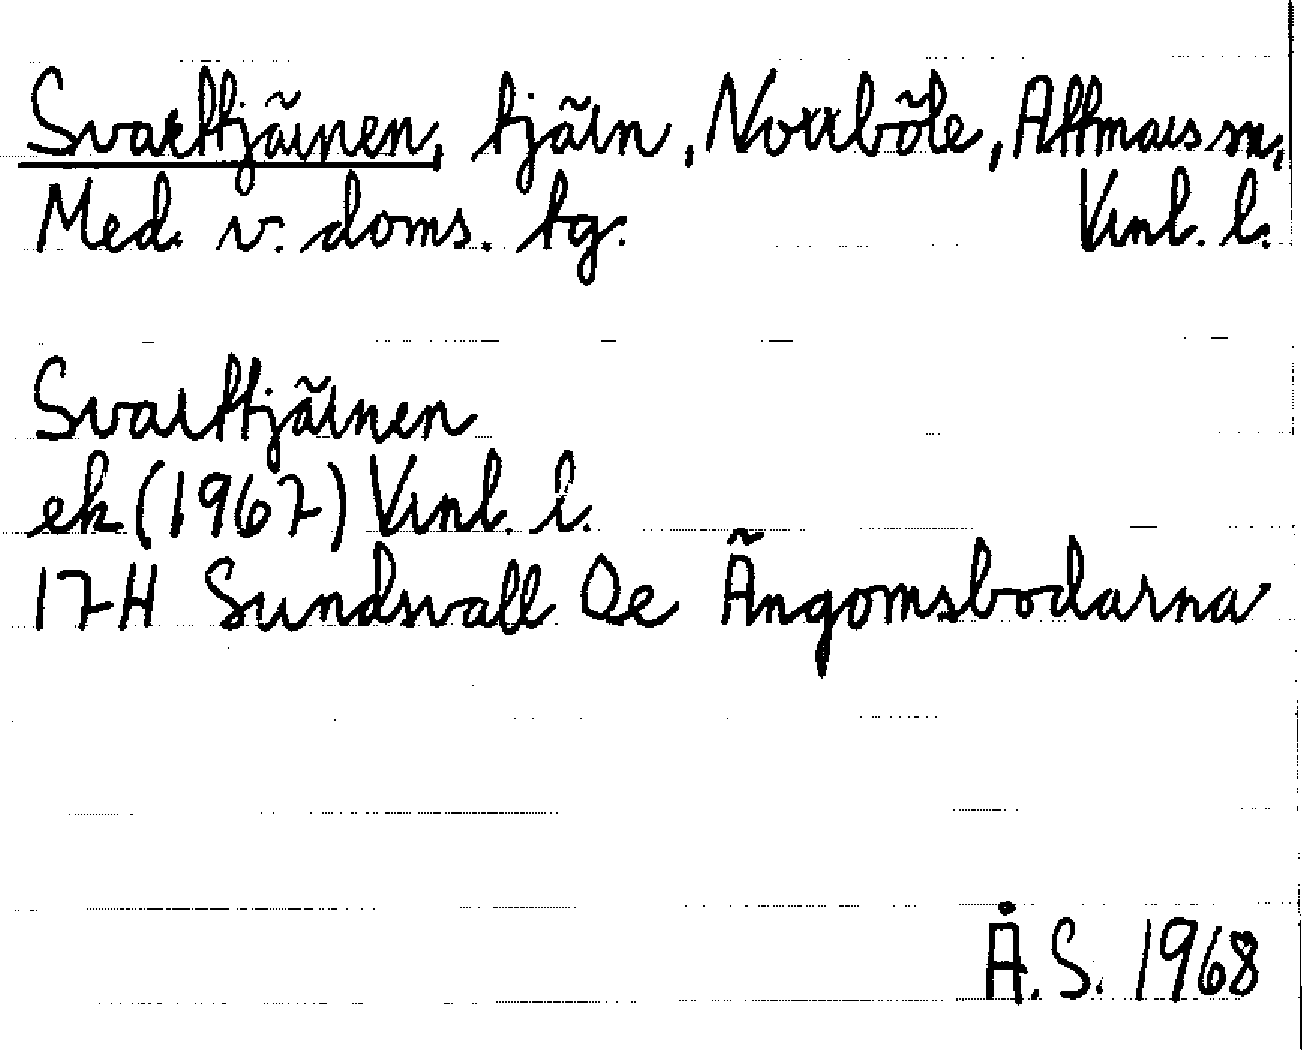 Svarttjärnen, tjärn, Norrböle, Attmars sn,
Med. v. doms. tg. Vnl. l.
Svarttjärnen
ek (1967) Vnl. l.
17H Sundsvall Oe Ängomsbodarna
Å. S. 1968